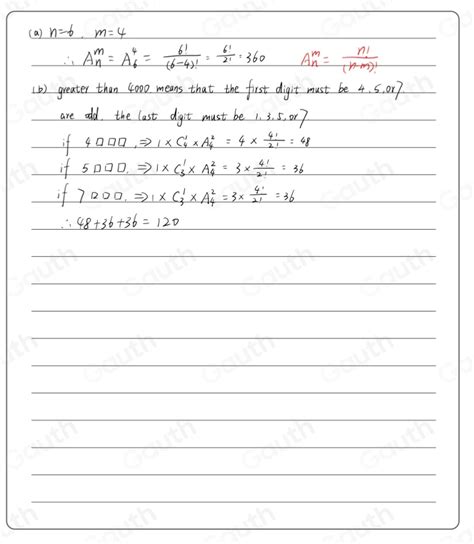 (a) n=6, m=4
∴ Aₙᵐ = A₆⁴ = 6!/(6-4)! = 6!/2! = 360 Aₙᵐ = n!/(n-m)!
(b) greater than 4000 means that the first digit must be 4.5.or 7
are odd. the last digit must be 1.3.5.or 7
if 4□□□, ⇒ 1 × C₄¹ × A₄² = 4 × 4!/2! = 48
if 5□□□, ⇒ 1 × C₃¹ × A₄² = 3 × 4!/2! = 36
if 7□□□, ⇒ 1 × C₃¹ × A₄² = 3 × 4!/2! = 36
∴ 48+36+36 = 120